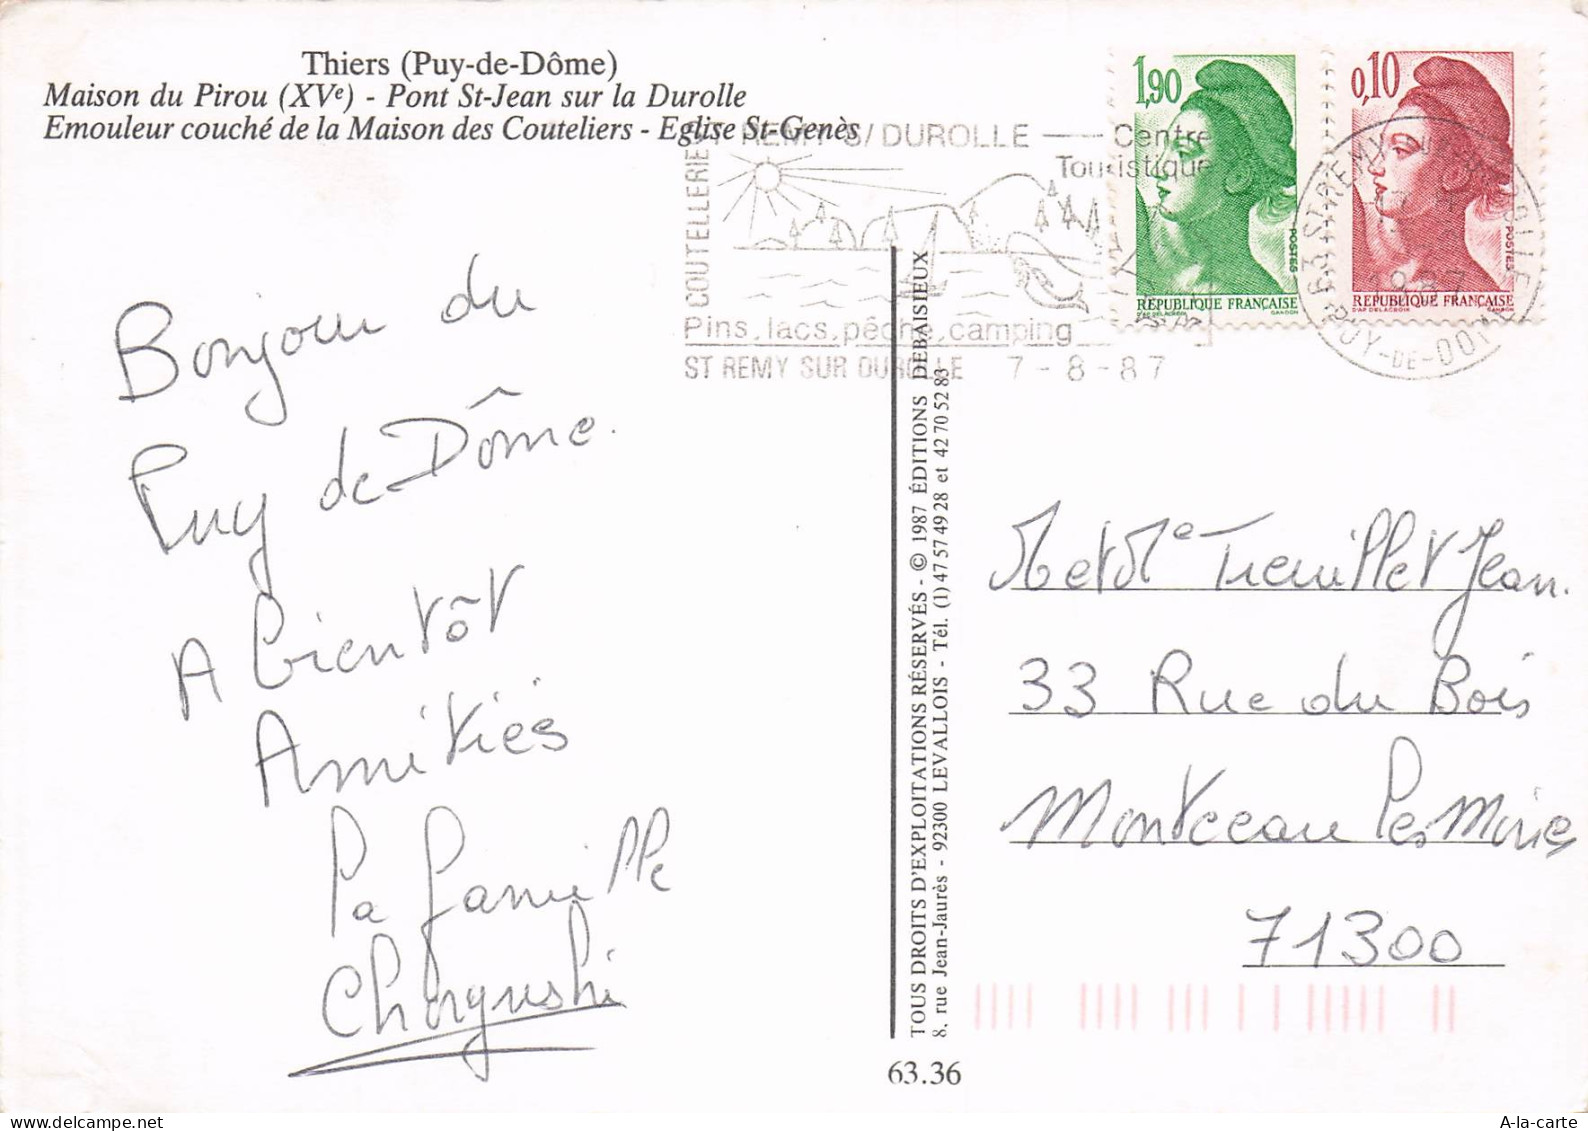 Thiers (Puy-de-Dôme)
Maison du Pirou (XVe) - Pont St-Jean sur la Durolle
Emouleur couché de la Maison des Couteliers - Eglise St-Genès
ST REMY S/DUROLLE — Centre
Touristique
COUTELLERIE
Pins, lacs, pêche, camping
ST REMY SUR DUROLLE 7-8-87
1,90
POSTES
RÉPUBLIQUE FRANÇAISE
D'AP DELACROIX GANDON
0,10
POSTES
RÉPUBLIQUE FRANÇAISE
D'AP DELACROIX GANDON
63 ST REMY S DUROLLE
PUY-DE-DOME
Bonjour du
Puy de Dôme.
A bientôt
Amitiés
la famille
TOUS DROITS D'EXPLOITATIONS RÉSERVÉS - © 1987 ÉDITIONS DEBAISIEUX
8, rue Jean-Jaurès - 92300 LEVALLOIS - Tél. (1) 47 57 49 28 et 42 70 52 83
63.36
M et Me Treuillet Jean.
33 Rue du Bois
Montceau les Mines
71300
A-la-carte